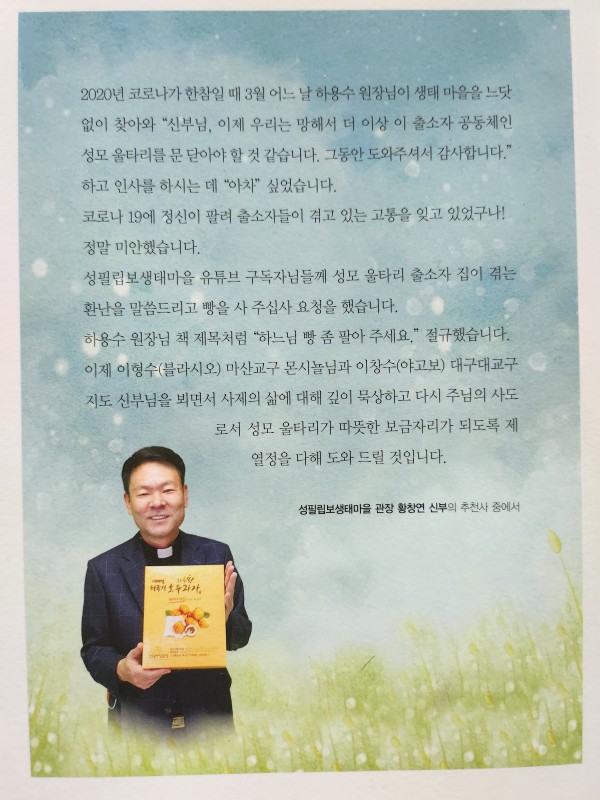 2020년 코로나가 한참일 때 3월 어느 날 하용수 원장님이 생태 마을을 느닷
없이 찾아와 “신부님, 이제 우리는 망해서 더 이상 이 출소자 공동체인
성모 울타리를 문 닫아야 할 것 같습니다. 그동안 도와주셔서 감사합니다.”
하고 인사를 하시는 데 “아차” 싶었습니다.
코로나 19에 정신이 팔려 출소자들이 겪고 있는 고통을 잊고 있었구나!
정말 미안했습니다.
성필립보생태마을 유튜브 구독자님들께 성모 울타리 출소자 집이 겪는
환난을 말씀드리고 빵을 사 주십사 요청을 했습니다.
하용수 원장님 책 제목처럼 “하느님 빵 좀 팔아 주세요.” 절규했습니다.
이제 이형수(블라시오) 마산교구 몬시뇰님과 이창수(야고보) 대구대교구
지도 신부님을 뵈면서 사제의 삶에 대해 깊이 묵상하고 다시 주님의 사도
로서 성모 울타리가 따뜻한 보금자리가 되도록 제
열정을 다해 도와 드릴 것입니다.
성필립보생태마을 관장 황창연 신부의 추천사 중에서
호두과자